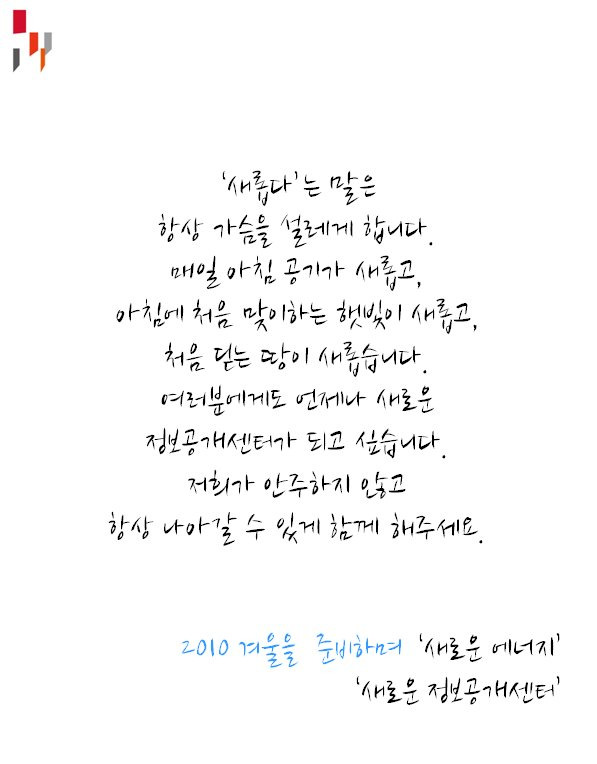 '새롭다'는 말은
항상 가슴을 설레게 합니다.
매일 아침 공기가 새롭고,
아침에 처음 맞이하는 햇빛이 새롭고,
처음 딛는 땅이 새롭습니다.
여러분에게도 언제나 새로운
정보공개센터가 되고 싶습니다.
저희가 안주하지 않고
항상 나아갈 수 있게 함께 해주세요.
2010 겨울을 준비하며 '새로운 에너지'
'새로운 정보공개센터'